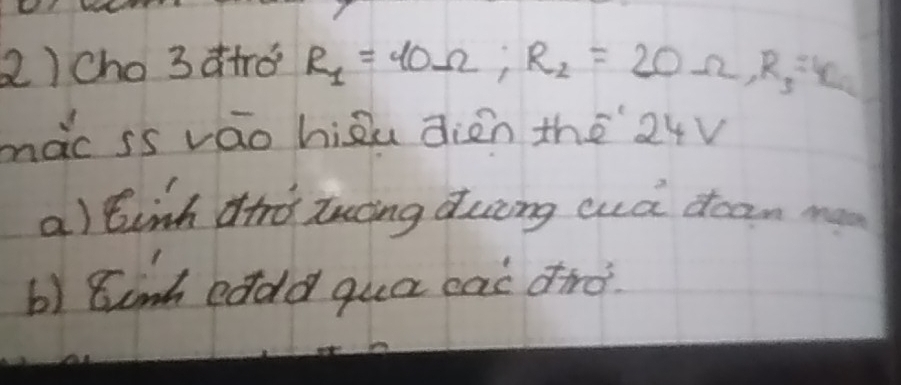 2) Cho 3 đtrở R₁ = 10Ω ; R₂ = 20Ω, R₃ =
mắc ss vào hiệu điện thế 24V
a) Tính đtrở tương đương của đoạn
b) Tính cđdđ qua các đtrở.